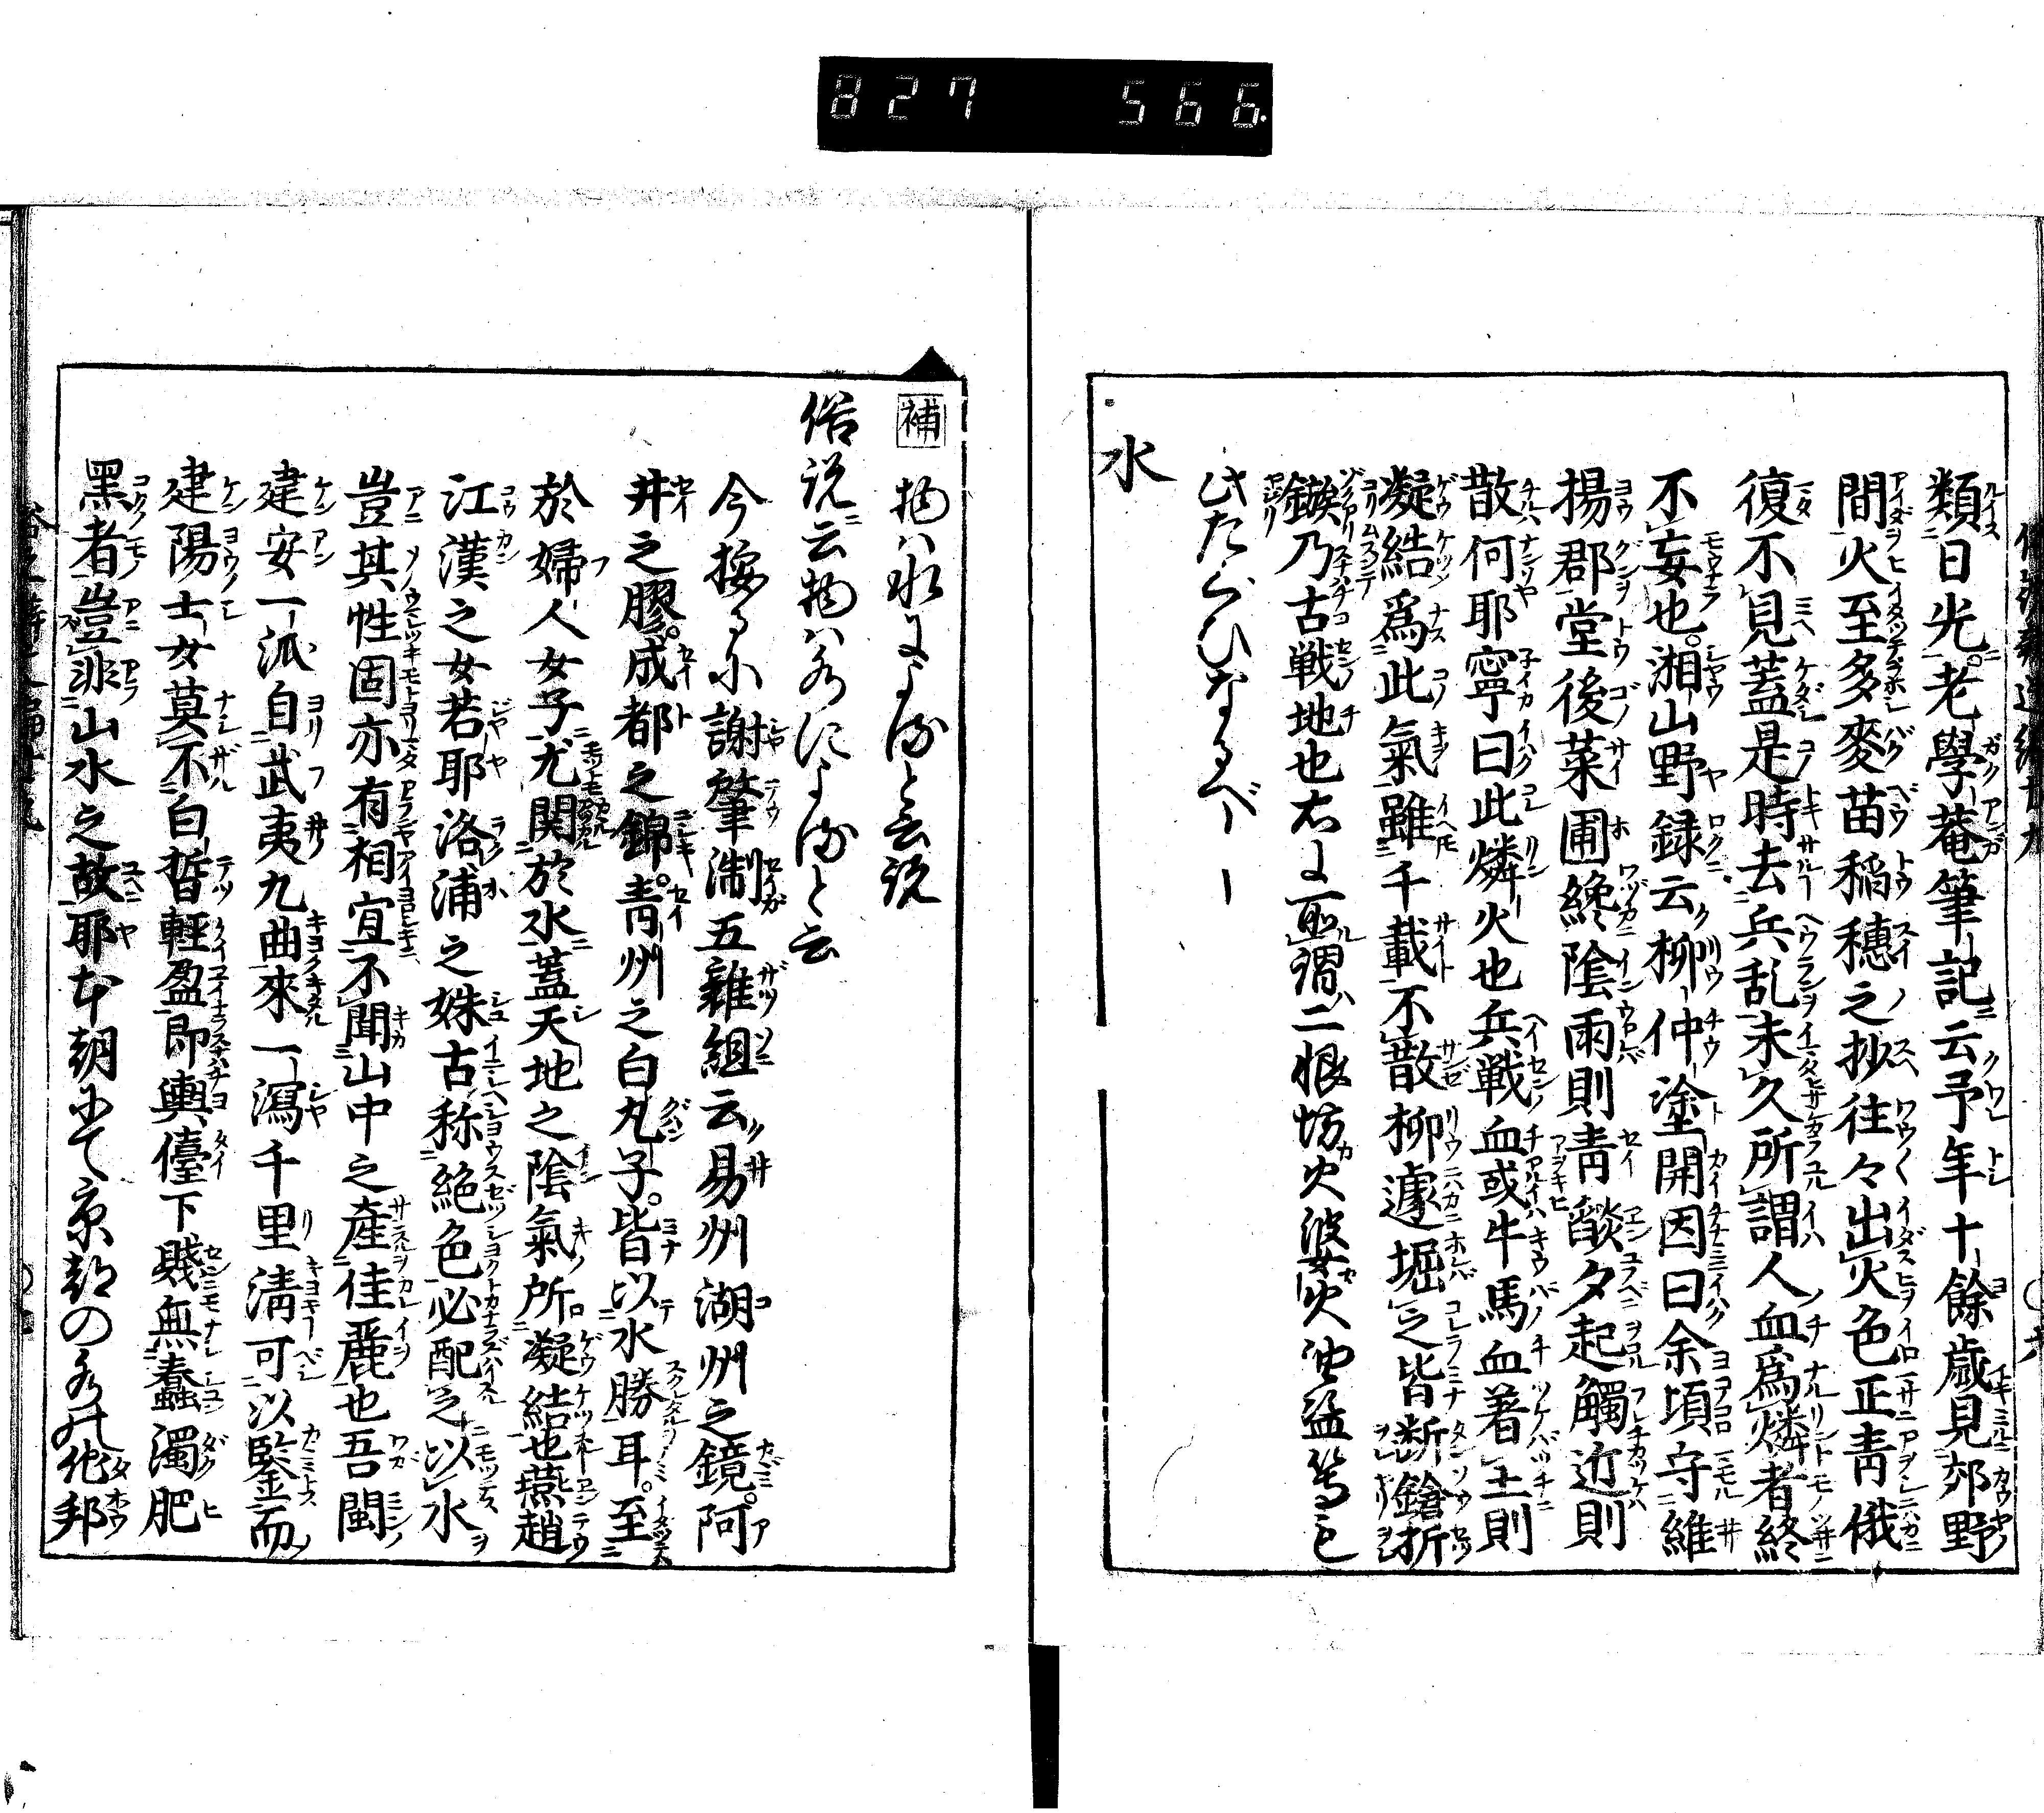 827 566
類日光老學菴筆記云予年十餘歳見郊野
間火至多麥苗稲穗之抄往々出火色正青俄
復不見蓋是時去兵乱未久所謂人血爲燐者終
不妄也湘山野録云柳仲塗開因曰余頃守維
揚郡堂後菜圃纔陰雨則青燄夕起觸近則
散何耶寧曰此燐火也兵戦血或牛馬血着土則
凝結爲此氣雖千載不散柳遽堀之皆断鎗折
鏃乃古戦地也右に所謂二恨坊火婆火
此たぐひなるべし
水
補 物ハ水によると云説
俗説云物ハ水によると云
今按るに謝肇淛五雜組云易州湖州之鏡阿
井之膠成都之錦青州之白丸子皆以水勝耳至
於婦人女子尤関於水蓋天地之陰氣所凝結也燕趙
江漢之女若耶洛浦之姝古称絶色必配之以水
豈其性固亦有相宜不聞山中之産佳麗也吾閩
建安一派自武夷九曲來一瀉千里清可以鑒而
建陽士女莫不白皙輕盈即輿儓下賤無蠢濁肥
黑者豈非山水之故耶本朝にて京都の水は他邦